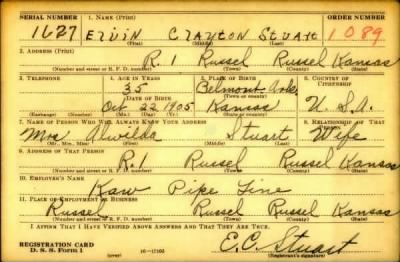 SERIAL NUMBER 1. NAME (Print) ORDER NUMBER
1627 Ervin Clayton Stuart 1089
(First) (Middle) (Last)
2. ADDRESS (Print)
R.1 Russel Russel Kansas
(Number and street or R. F. D. number) (Town) (County) (State)
3. TELEPHONE 4. AGE IN YEARS 5. PLACE OF BIRTH 6. COUNTRY OF CITIZENSHIP
35 Belmont
DATE OF BIRTH (Town or county)
Oct 22 1905 Kansas U.S.A.
(Exchange) (Number) (Mo.) (Day) (Yr.) (State or country)
7. NAME OF PERSON WHO WILL ALWAYS KNOW YOUR ADDRESS 8. RELATIONSHIP OF THAT PERSON
Mrs Alwilda Stuart Wife
(Mr., Mrs., Miss) (First) (Middle) (Last)
9. ADDRESS OF THAT PERSON
R.1 Russel Russel Kansas
(Number and street or R. F. D. number) (Town) (County) (State)
10. EMPLOYER'S NAME
Kaw Pipe Line
11. PLACE OF EMPLOYMENT OR BUSINESS
Russel Russel Russel Kansas
(Number and street or R. F. D. number) (Town) (County) (State)
I AFFIRM THAT I HAVE VERIFIED ABOVE ANSWERS AND THAT THEY ARE TRUE.
REGISTRATION CARD
D. S. S. Form 1 (over) E.C. Stuart
(Registrant's signature)